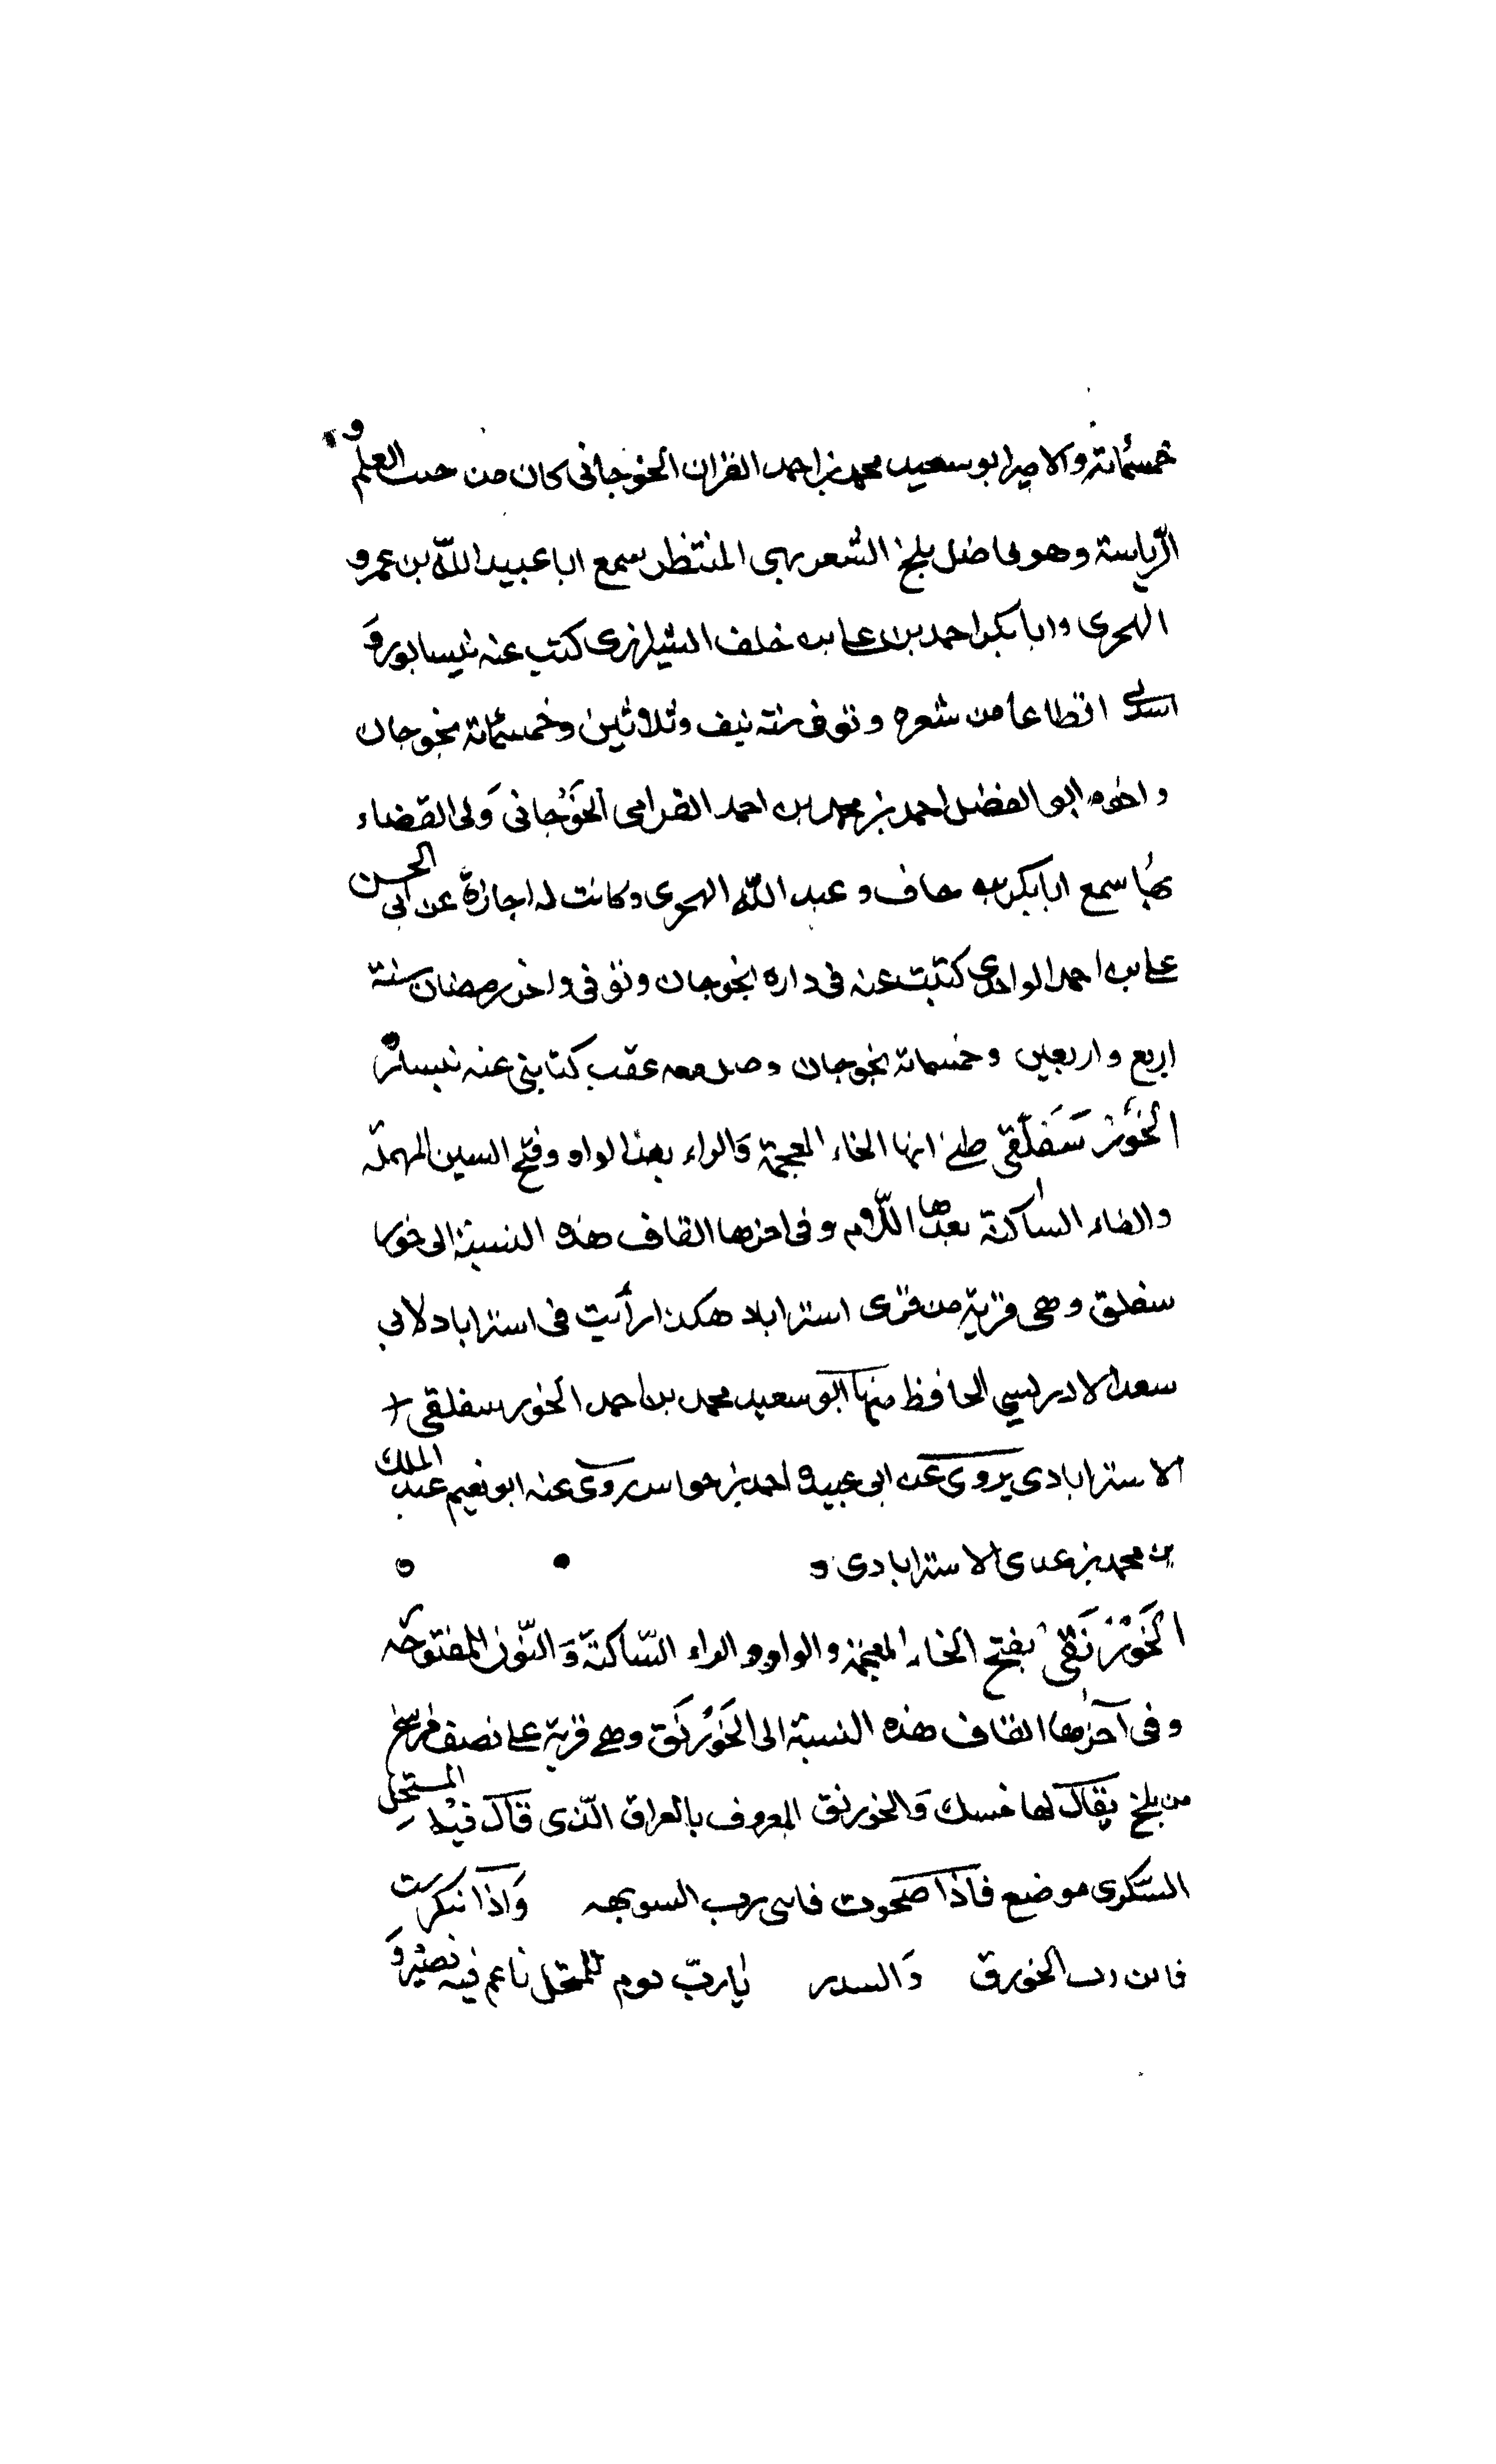 خمسمائة والامير ابو سعيد محمد بن احمد الفران الخوجاني كان من حب العلم و
الرياسة وهو فاضل بلخ الشعر بهي المنتظر سمع ابا عبيد الله بن عمرو
الهحرى وابا بكر احمد بن علي بن خلف الشيرازى كتب عنه نيسابور و
اسدى اقطاعا من شعره وتوفى سنة نيف وثلاثين وخمسمائة بخوجان
واخوه ابو الفضل احمد بن محمد بن احمد الفرامى الخَوْجانى وَلى القضاء
بها سمع ابا بكر بن خاف و عبد الله الهحرى وكانت له اجازة عن ابى الحسن
على بن احمد الواحدى كتبت عنه فى داره بخوجان وتوفى واخر رمضان سنة
اربع واربعين وخمسمائة بخوجان وصل معه عقب كتابتى عنه
الخَوْر سَفلَقى الخاء المعجمة وَالراء بعد الواو وفتح السين المهملة
والفاء الساكنة بعدها اللّام وفى اخرها القاف هذه النسبة الى خور
سفلق وهى قرية من قرى استراباد هكذا رأيت فى استراباد لابى
سعد الادريسي الحافظ منها ابو سعيد محمد بن احمد الخور سفلقى
الاسترابادى يروى عن ابى عبيدة احمد بن حواس روى عنه ابو نعيم عبد الملك
بن محمد بن عدى الاسترابادى
الخَوْرنَقى بفتح الخاء المعجمة والواو و الراء السّاكنة وَالنّون المفتوحة
وفى آخرها القاف هذه النسبة الى الخَوْرنَق وهى قرية على نصف فرسخ
من بلخ يقال لها خسك وَالخورنق المعروف بالعراق الّذى قال فيه المستحل
السّكرى موضع فاذا صحوت فانى رب السويهه وَاذا سكرت
فانى رب الخورق وَالسدر يا ربّ يوم للمتحل ناعم فيه نصير وَ